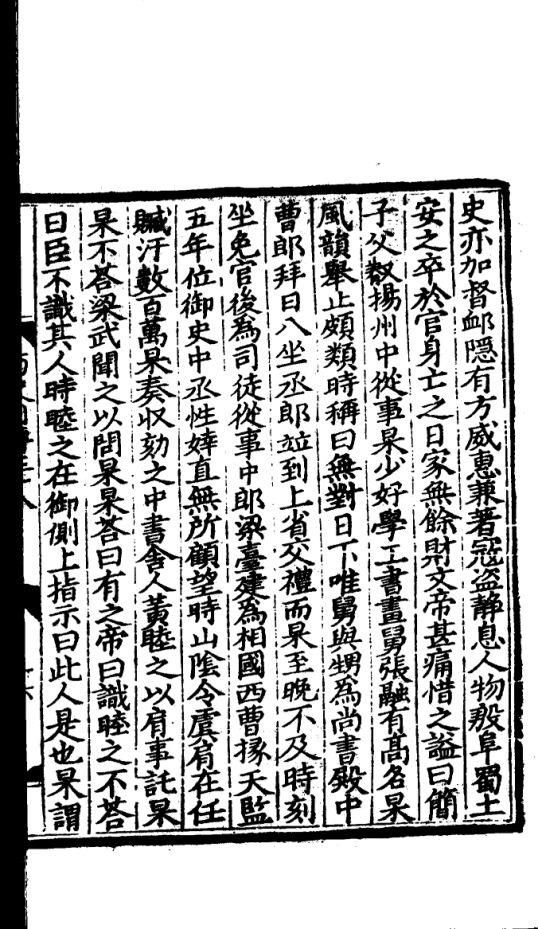 史亦加督䘏隱有方威惠兼著寇盗静息人物殷阜蜀土
安之卒於官身亡之日家無餘財文帝甚痛惜之謚曰簡
子父叡揚州中從事杲少好學工書畫舅張融有髙名杲
風韻舉止頗類時稱曰無對日下唯舅與甥為尚書殿中
曹郎拜日八坐丞郎竝到上省交禮而杲至晚不及時刻
坐免官後為司徒從事中郎梁臺建為相國西曹掾天監
五年位御史中丞性婞直無所顧望時山隂令虞肩在任
贓汙數百萬杲奏収劾之中書舍人黃睦之以肩事託杲
杲不荅梁武聞之以問杲杲荅曰有之帝曰識睦之不荅
曰臣不識其人時睦之在御側上指示曰此人是也杲謂